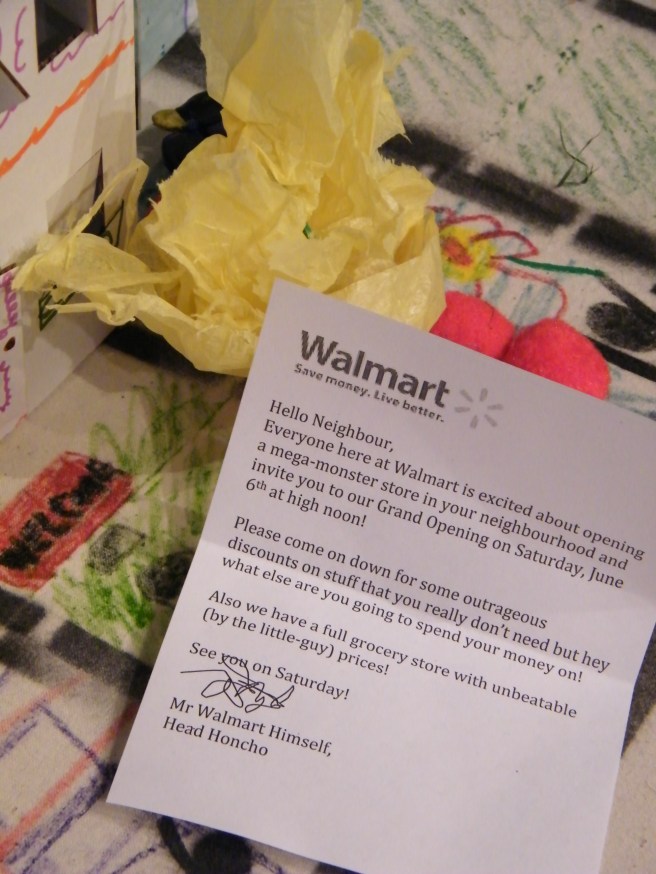 Walmart
Save money. Live better.
Hello Neighbour,
Everyone here at Walmart is excited about opening
a mega-monster store in your neighbourhood and
invite you to our Grand Opening on Saturday, June
6th at high noon!
Please come on down for some outrageous
discounts on stuff that you really don't need but hey
what else are you going to spend your money on!
Also we have a full grocery store with unbeatable
(by the little-guy) prices!
See you on Saturday!
Mr Walmart Himself,
Head Honcho
WELCOME